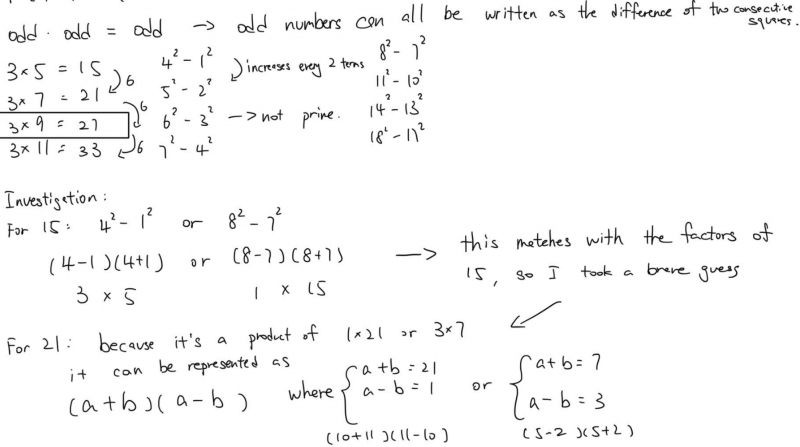 odd · odd = odd → odd numbers can all be written as the difference of two consecutive squares.
3×5 = 15 4² - 1² 8² - 7²
6 increases every 2 terms
3×7 = 21 5² - 2² 11² - 10²
6
3×9 = 27 6² - 3² → not prime. 14² - 13²
6
3×11 = 33 7² - 4² 18² - 17²
Investigation:
For 15: 4² - 1² or 8² - 7²
(4-1)(4+1) or (8-7)(8+7) → this matches with the factors of
3 × 5 1 × 15 15, so I took a brave guess
For 21: because it's a product of 1×21 or 3×7
it can be represented as
(a+b)(a-b) where { a+b = 21 or { a+b = 7
a-b = 1 a-b = 3
(10+11)(11-10) (5-2)(5+2)